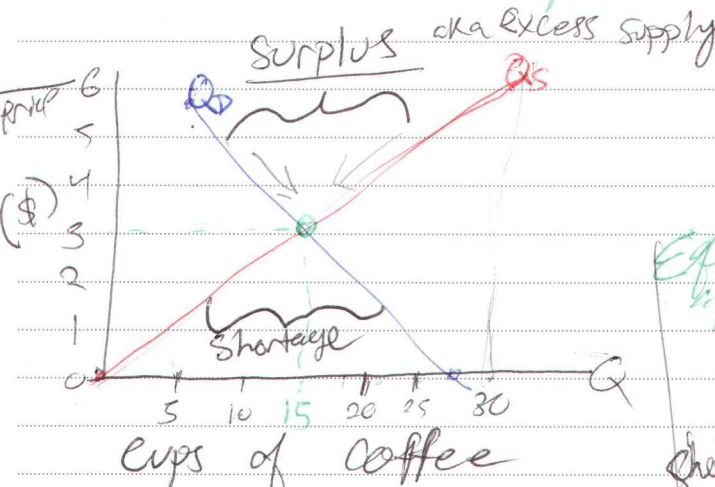 Surplus aka Excess supply
QD
QS
Price
($)
6
5
4
3
2
1
0
Shortage
5 10 15 20 25 30
Q
cups of coffee